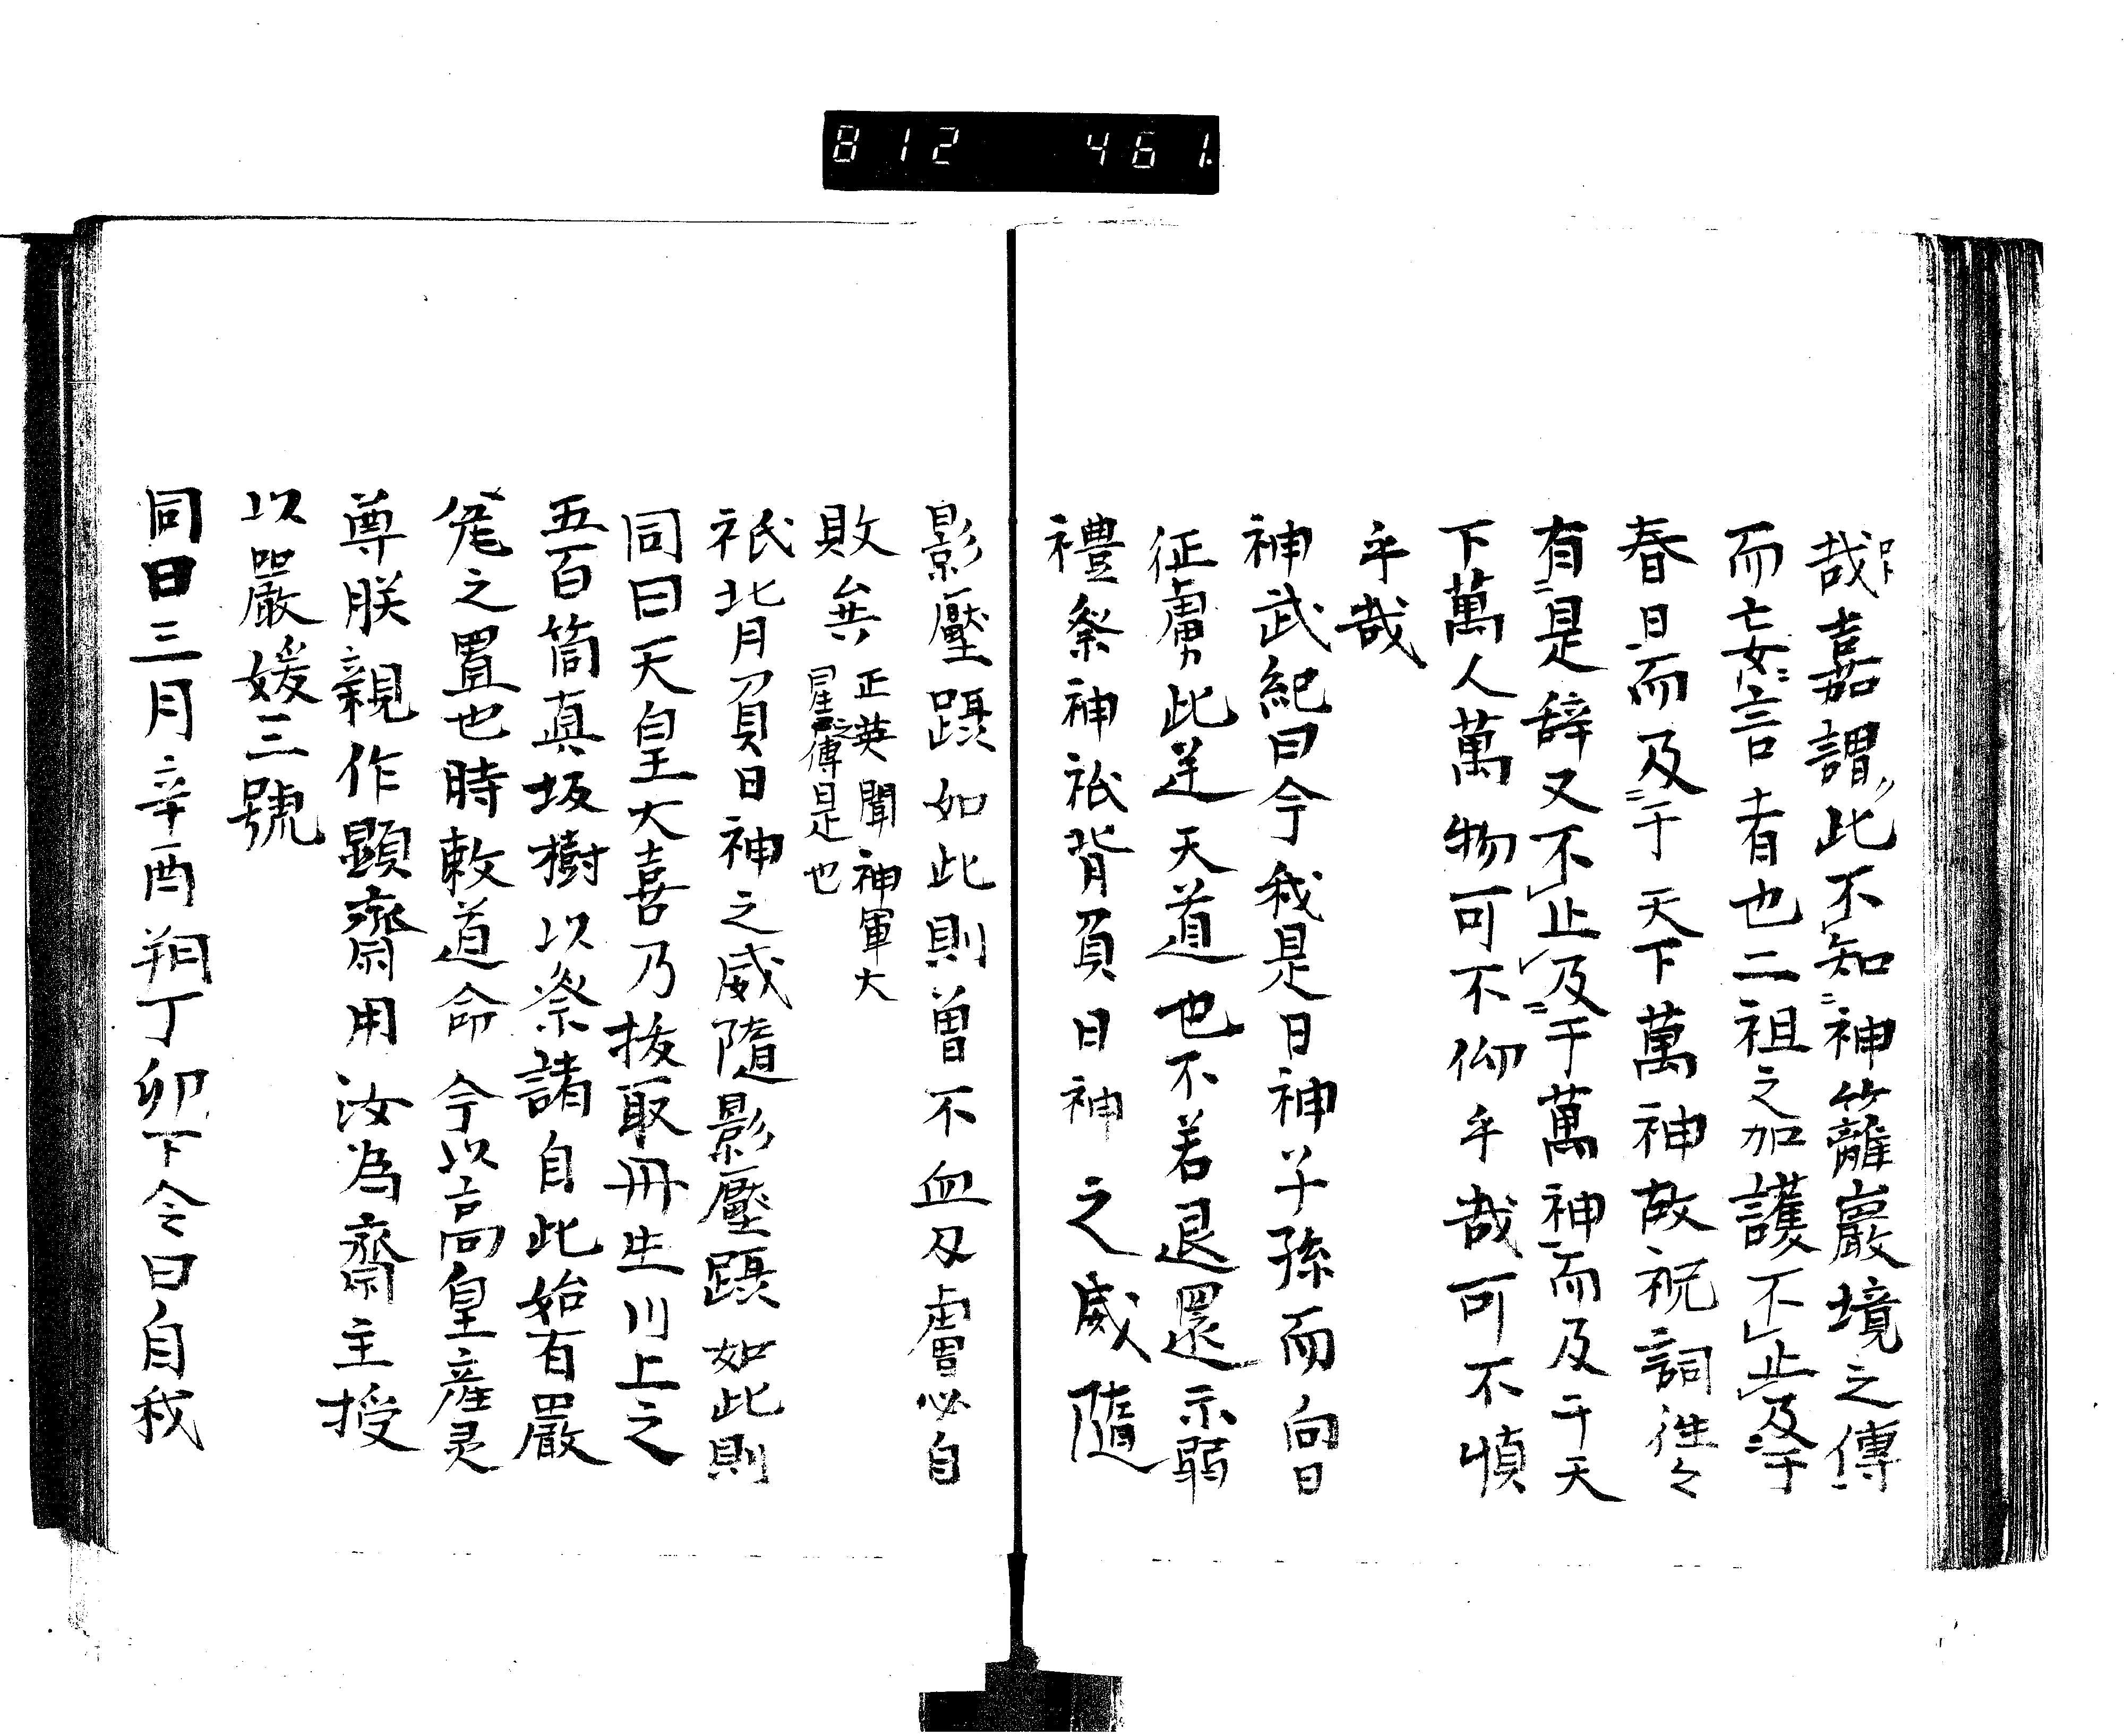 812 461.
哉嘉謂此不知神籬巖境之傳
而妄言者也二祖之加護不止及于
春日而及于天下萬神故祝詞往々
有是辞又不止及于萬神而及于天
下萬人萬物可不仰乎哉可不慎
乎哉
神武紀曰今我是日神子孫而向日
征虜此逆天道也不若退還示弱
禮祭神祇背負日神之威隨
影壓躡如此則曽不血刃虜必自
敗矣正英聞神軍大
星之傳是也
祇背負日神之威隨影壓躡如此則
同曰天皇大喜乃拔取丹生川上之
五百箇真坂樹以祭諸自此始有嚴
瓮之置也時敕道命今以高皇産灵
尊朕親作顕齋用汝為齋主授
以嚴媛之號
同曰三月辛酉朔丁卯下令曰自我